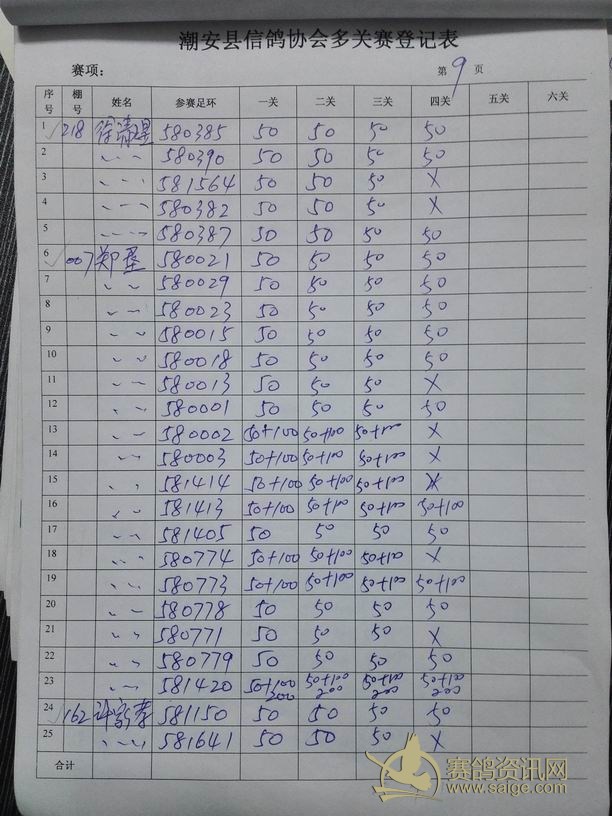 潮安县信鸽协会多关赛登记表
赛项: 第 9 页
序号 棚号 姓名 参赛足环 一关 二关 三关 四关 五关 六关
1 218 徐 580385 50 50 50 50
2 580390 50 50 50 50
3 581564 50 50 50 X
4 580382 50 50 50 X
5 580387 50 50 50 50
6 007 郑 580021 50 50 50 50
7 580029 50 50 50 50
8 580023 50 50 50 50
9 580015 50 50 50 50
10 580018 50 50 50 50
11 580013 50 50 50 X
12 580001 50 50 50 50
13 580002 50+100 50+100 50+100 X
14 580003 50+100 50+100 50+100 X
15 581414 50+100 50+100 50+100 X
16 581413 50+100 50+100 50+100 50+100
17 581405 50 50 50 50
18 580774 50+100 50+100 50+100 X
19 580773 50+100 50+100 50+100 50+100
20 580778 50 50 50 50
21 580771 50 50 50 X
22 580779 50 50 50 50
23 581420 50+100 50+100 50+100 50+100
200 200 200 200
24 162 许 581150 50 50 50 50
25 581641 50 50 50 X
合计
赛鸽资讯网
www.saige.com